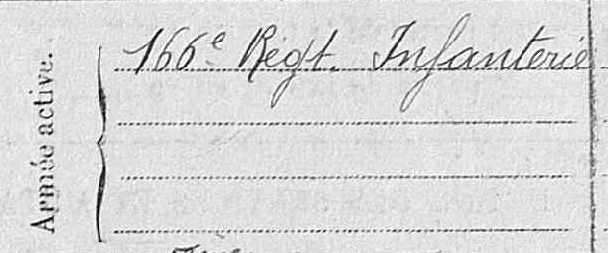 Armée active.
166e Régt. Infanterie